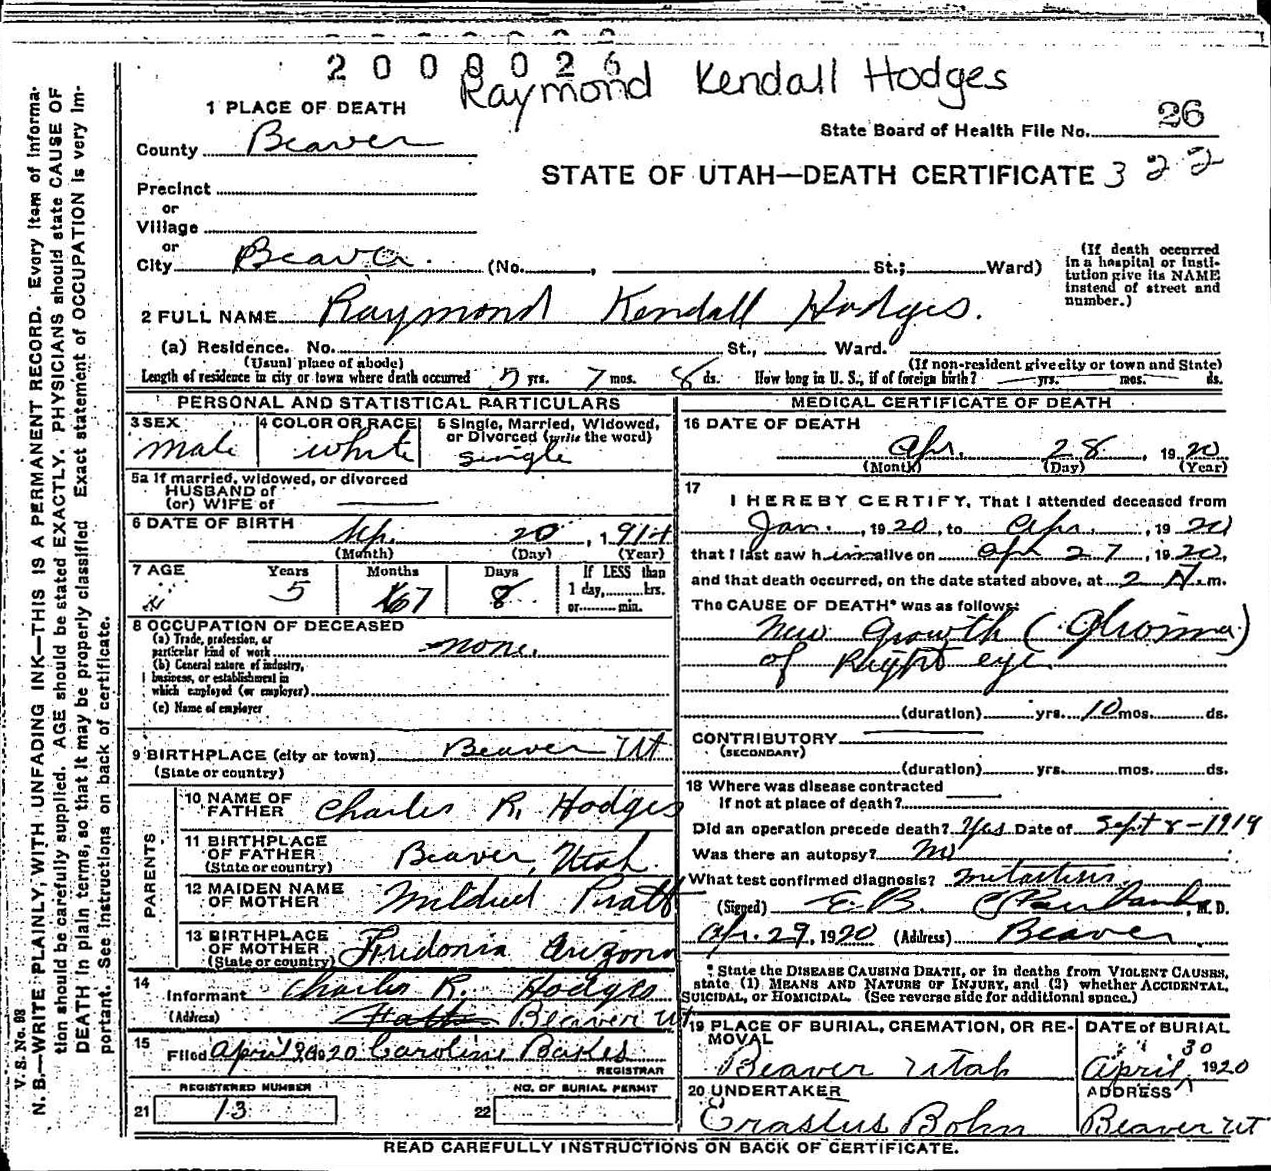 2000026
Raymond Kendall Hodges
1 PLACE OF DEATH
State Board of Health File No. 26
County Beaver
STATE OF UTAH—DEATH CERTIFICATE 322
Precinct
or
Village
or
City Beaver. (No. , St.; Ward)
(If death occurred in a hospital or institution give its NAME instead of street and number.)
2 FULL NAME Raymond Kendall Hodges.
(a) Residence. No. St., Ward.
(Usual place of abode) (If non-resident give city or town and State)
Length of residence in city or town where death occurred 5 yrs. 7 mos. 8 ds. How long in U. S., if of foreign birth? yrs. mos. ds.
PERSONAL AND STATISTICAL PARTICULARS
3 SEX male
4 COLOR OR RACE white
5 Single, Married, Widowed, or Divorced (write the word) single
5a If married, widowed, or divorced
HUSBAND of
(or) WIFE of
6 DATE OF BIRTH Sep. 20, 1914
(Month) (Day) (Year)
7 AGE Years 5 Months 7 Days 8 If LESS than 1 day, hrs. or min.
8 OCCUPATION OF DECEASED
(a) Trade, profession, or particular kind of work none.
(b) General nature of industry, business, or establishment in which employed (or employer)
(c) Name of employer
9 BIRTHPLACE (city or town) Beaver Ut
(State or country)
PARENTS
10 NAME OF FATHER Charles R. Hodges
11 BIRTHPLACE OF FATHER (State or country) Beaver, Utah.
12 MAIDEN NAME OF MOTHER Mildred Pratt
13 BIRTHPLACE OF MOTHER (State or country) Fredonia Arizona
14 Informant Charles R. Hodges
(Address) Beaver Ut
15 Filed April 30 1920 Caroline Bakes
REGISTRAR
REGISTERED NUMBER
21 13
NO. OF BURIAL PERMIT
22
MEDICAL CERTIFICATE OF DEATH
16 DATE OF DEATH
Apr. 28, 1920
(Month) (Day) (Year)
17 I HEREBY CERTIFY, That I attended deceased from
Jan., 1920, to Apr., 1920
that I last saw him alive on Apr 27, 1920,
and that death occurred, on the date stated above, at 2 A.m.
The CAUSE OF DEATH* was as follows:
New Growth (Glioma)
of Right eye.
(duration) yrs. 10 mos. ds.
CONTRIBUTORY
(SECONDARY)
(duration) yrs. mos. ds.
18 Where was disease contracted
If not at place of death?
Did an operation precede death? Yes Date of Sept 8-1919
Was there an autopsy? No
What test confirmed diagnosis? metastisis
(Signed) E. B. Fairbanks, M. D.
Apr. 29, 1920 (Address) Beaver
* State the DISEASE CAUSING DEATH, or in deaths from VIOLENT CAUSES, state (1) MEANS AND NATURE OF INJURY, and (2) whether ACCIDENTAL, SUICIDAL, or HOMICIDAL. (See reverse side for additional space.)
19 PLACE OF BURIAL, CREMATION, OR REMOVAL
Beaver Utah
DATE of BURIAL
April 30 1920
20 UNDERTAKER
Erastus Bohn
ADDRESS
Beaver Ut
READ CAREFULLY INSTRUCTIONS ON BACK OF CERTIFICATE.
V. S. No. 98
N. B.—WRITE PLAINLY, WITH UNFADING INK—THIS IS A PERMANENT RECORD. Every item of information should be carefully supplied. AGE should be stated EXACTLY. PHYSICIANS should state CAUSE OF DEATH in plain terms, so that it may be properly classified. Exact statement of OCCUPATION is very important. See instructions on back of certificate.